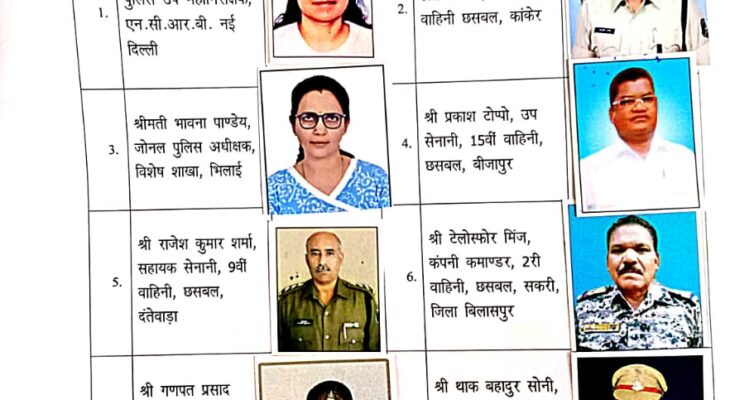 1.
पुलिस उप महानिरीक्षक,
एन.सी.आर.बी. नई
दिल्ली
2.
वाहिनी छसबल, कांकेर
3.
श्रीमती भावना पाण्डेय,
जोनल पुलिस अधीक्षक,
विशेष शाखा, भिलाई
4.
श्री प्रकाश टोप्पो, उप
सेनानी, 15वीं वाहिनी,
छसबल, बीजापुर
5.
श्री राजेश कुमार शर्मा,
सहायक सेनानी, 9वीं
वाहिनी, छसबल,
दंतेवाड़ा
6.
श्री टेलोस्फोर मिंज,
कंपनी कमाण्डर, 2री
वाहिनी, छसबल, सकरी,
जिला बिलासपुर
श्री गणपत प्रसाद
श्री थाक बहादुर सोनी,